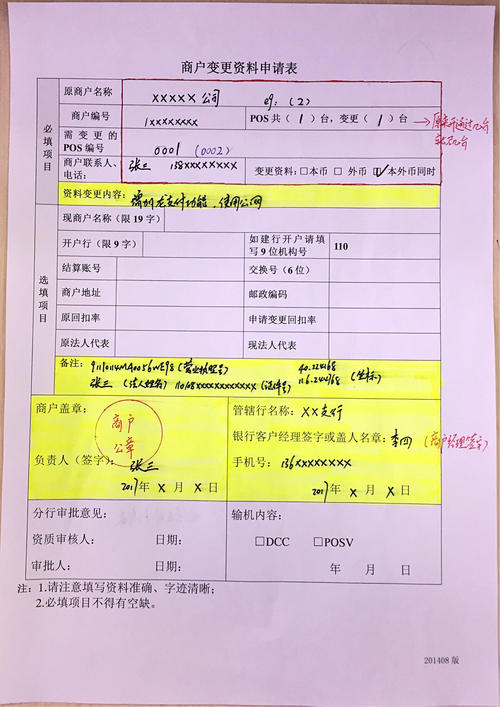 商户变更资料申请表
必填项目
原商户名称
XXXXX公司
eg:(2)
商户编号
1XXXXXXXX
POS共(1)台，变更(1)台
需变更的
POS编号
0001 (0002)
商户联系人、
电话:
张三 138XXXXXXXX
变更资料:□本币 □外币 ☑本外币同时
资料变更内容:增加龙支付功能，使用公网
选填项目
现商户名称（限19字）
开户行（限9字）
如建行开户请填
写9位机构号
110
结算账号
交换号（6位）
商户地址
邮政编码
原回扣率
申请变更回扣率
原法人代表
现法人代表
备注:
(营业执照号)
张三 (法人姓名) 110108XXXXXXXXXXXX (证件号)
40.224168
116.244168 (坐标)
商户盖章:
商户
公章
负责人（签字）:
张三
2017年 X 月 X 日
管辖行名称: XX支行
银行客户经理签字或盖人名章: 李四 (客户经理签字)
手机号: 136XXXXXXXX
2017年 X 月 X 日
分行审批意见:
资质审核人: 日期:
审批人: 日期:
输机内容:
□DCC □POSV
年 月 日
注: 1.请注意填写资料准确、字迹清晰;
2.必填项目不得有空缺。
201408 版